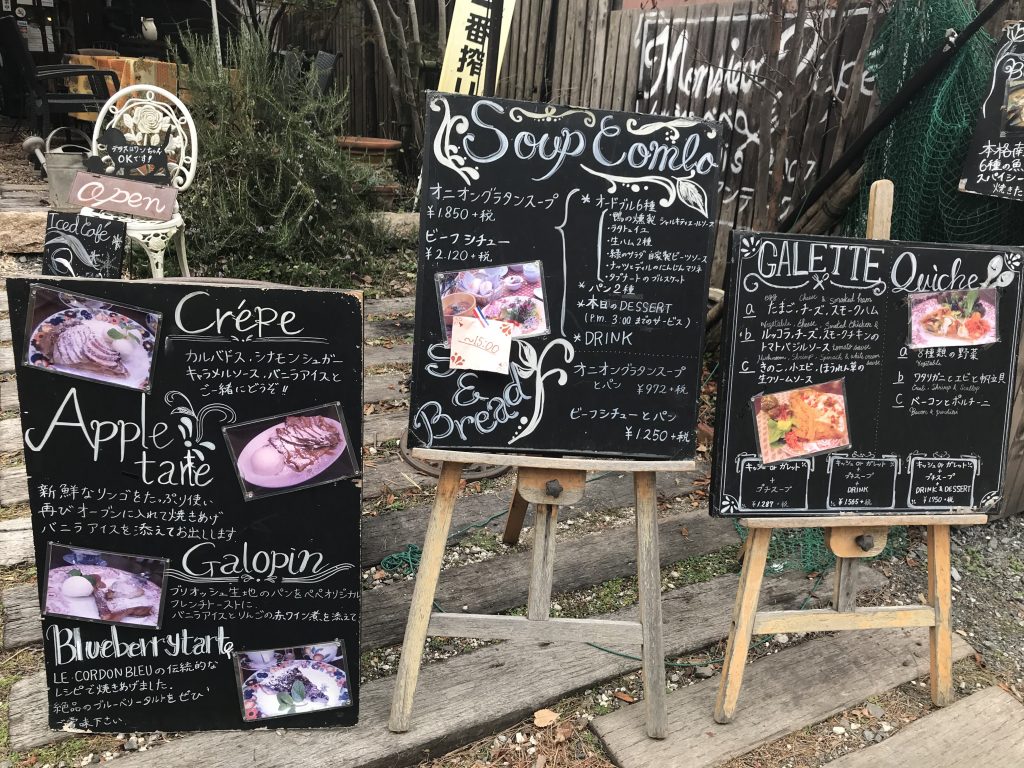 一番搾り
Monsieur
テラスワンちゃん
OKです!
open
Iced Café
Crépe
カルバドス・シナモンシュガー
キャラメルソース、バニラアイスと
ご一緒にどうぞ!!
Apple
tarte
新鮮なリンゴをたっぷり使い
再びオーブンに入れて焼きあげ
バニラアイスを添えてお出しします
Galopin
ブリオッシュ生地のパンをペペオリジナル
フレンチトーストに
バニラアイスとりんごの赤ワイン煮を添えて
Blueberrytarte
LE CORDON BLEUの伝統的な
レシピで焼きあげました.
絶品のブルーベリータルトをぜひ
ご賞味下さい
Soup Combo
オニオングラタンスープ
¥1.850+税
ビーフシチュー
¥2.120+税
*オードブル6種
・鴨の燻製
・ラタトゥイユ
・生ハム2種
・緑のサラダ 自家製ビーツソース
・ナーッとディルのにんじんマリネ
*パン2種
*本日のDESSERT
(P.M. 3:00までのサービス)
*DRINK
~15:00
&
Bread
オニオングラタンスープ
とパン
¥972+税
ビーフシチューとパン
¥1250+税
GALETTE
egg Cheese & Smoked ham
a たまご、チーズ、スモークハム
Vegetable, Cheese, Smoked Chicken &
b ルッコラ、チーズ、スモークチキンの
トマトバジルソース tomato sauce
Mushroom, Shrimp, Spinach & white cream sauce
c きのこ、小エビ、ほうれん草の
生クリームソース
Quiche
a 8種類の野菜
Vegetable
b ワタリガニとエビと帆立貝
Crab, Shrimp & Scallop
c ベーコンとポルチーニ
キッシュ or ガレット
+
プチスープ
¥1287+税
キッシュ or ガレット
プチスープ
+
DRINK
¥1565+税
キッシュ or ガレット
プチスープ
+
DRINK & DESSERT
¥1750+税
本格南
6種の魚
スパイシー
焼きた